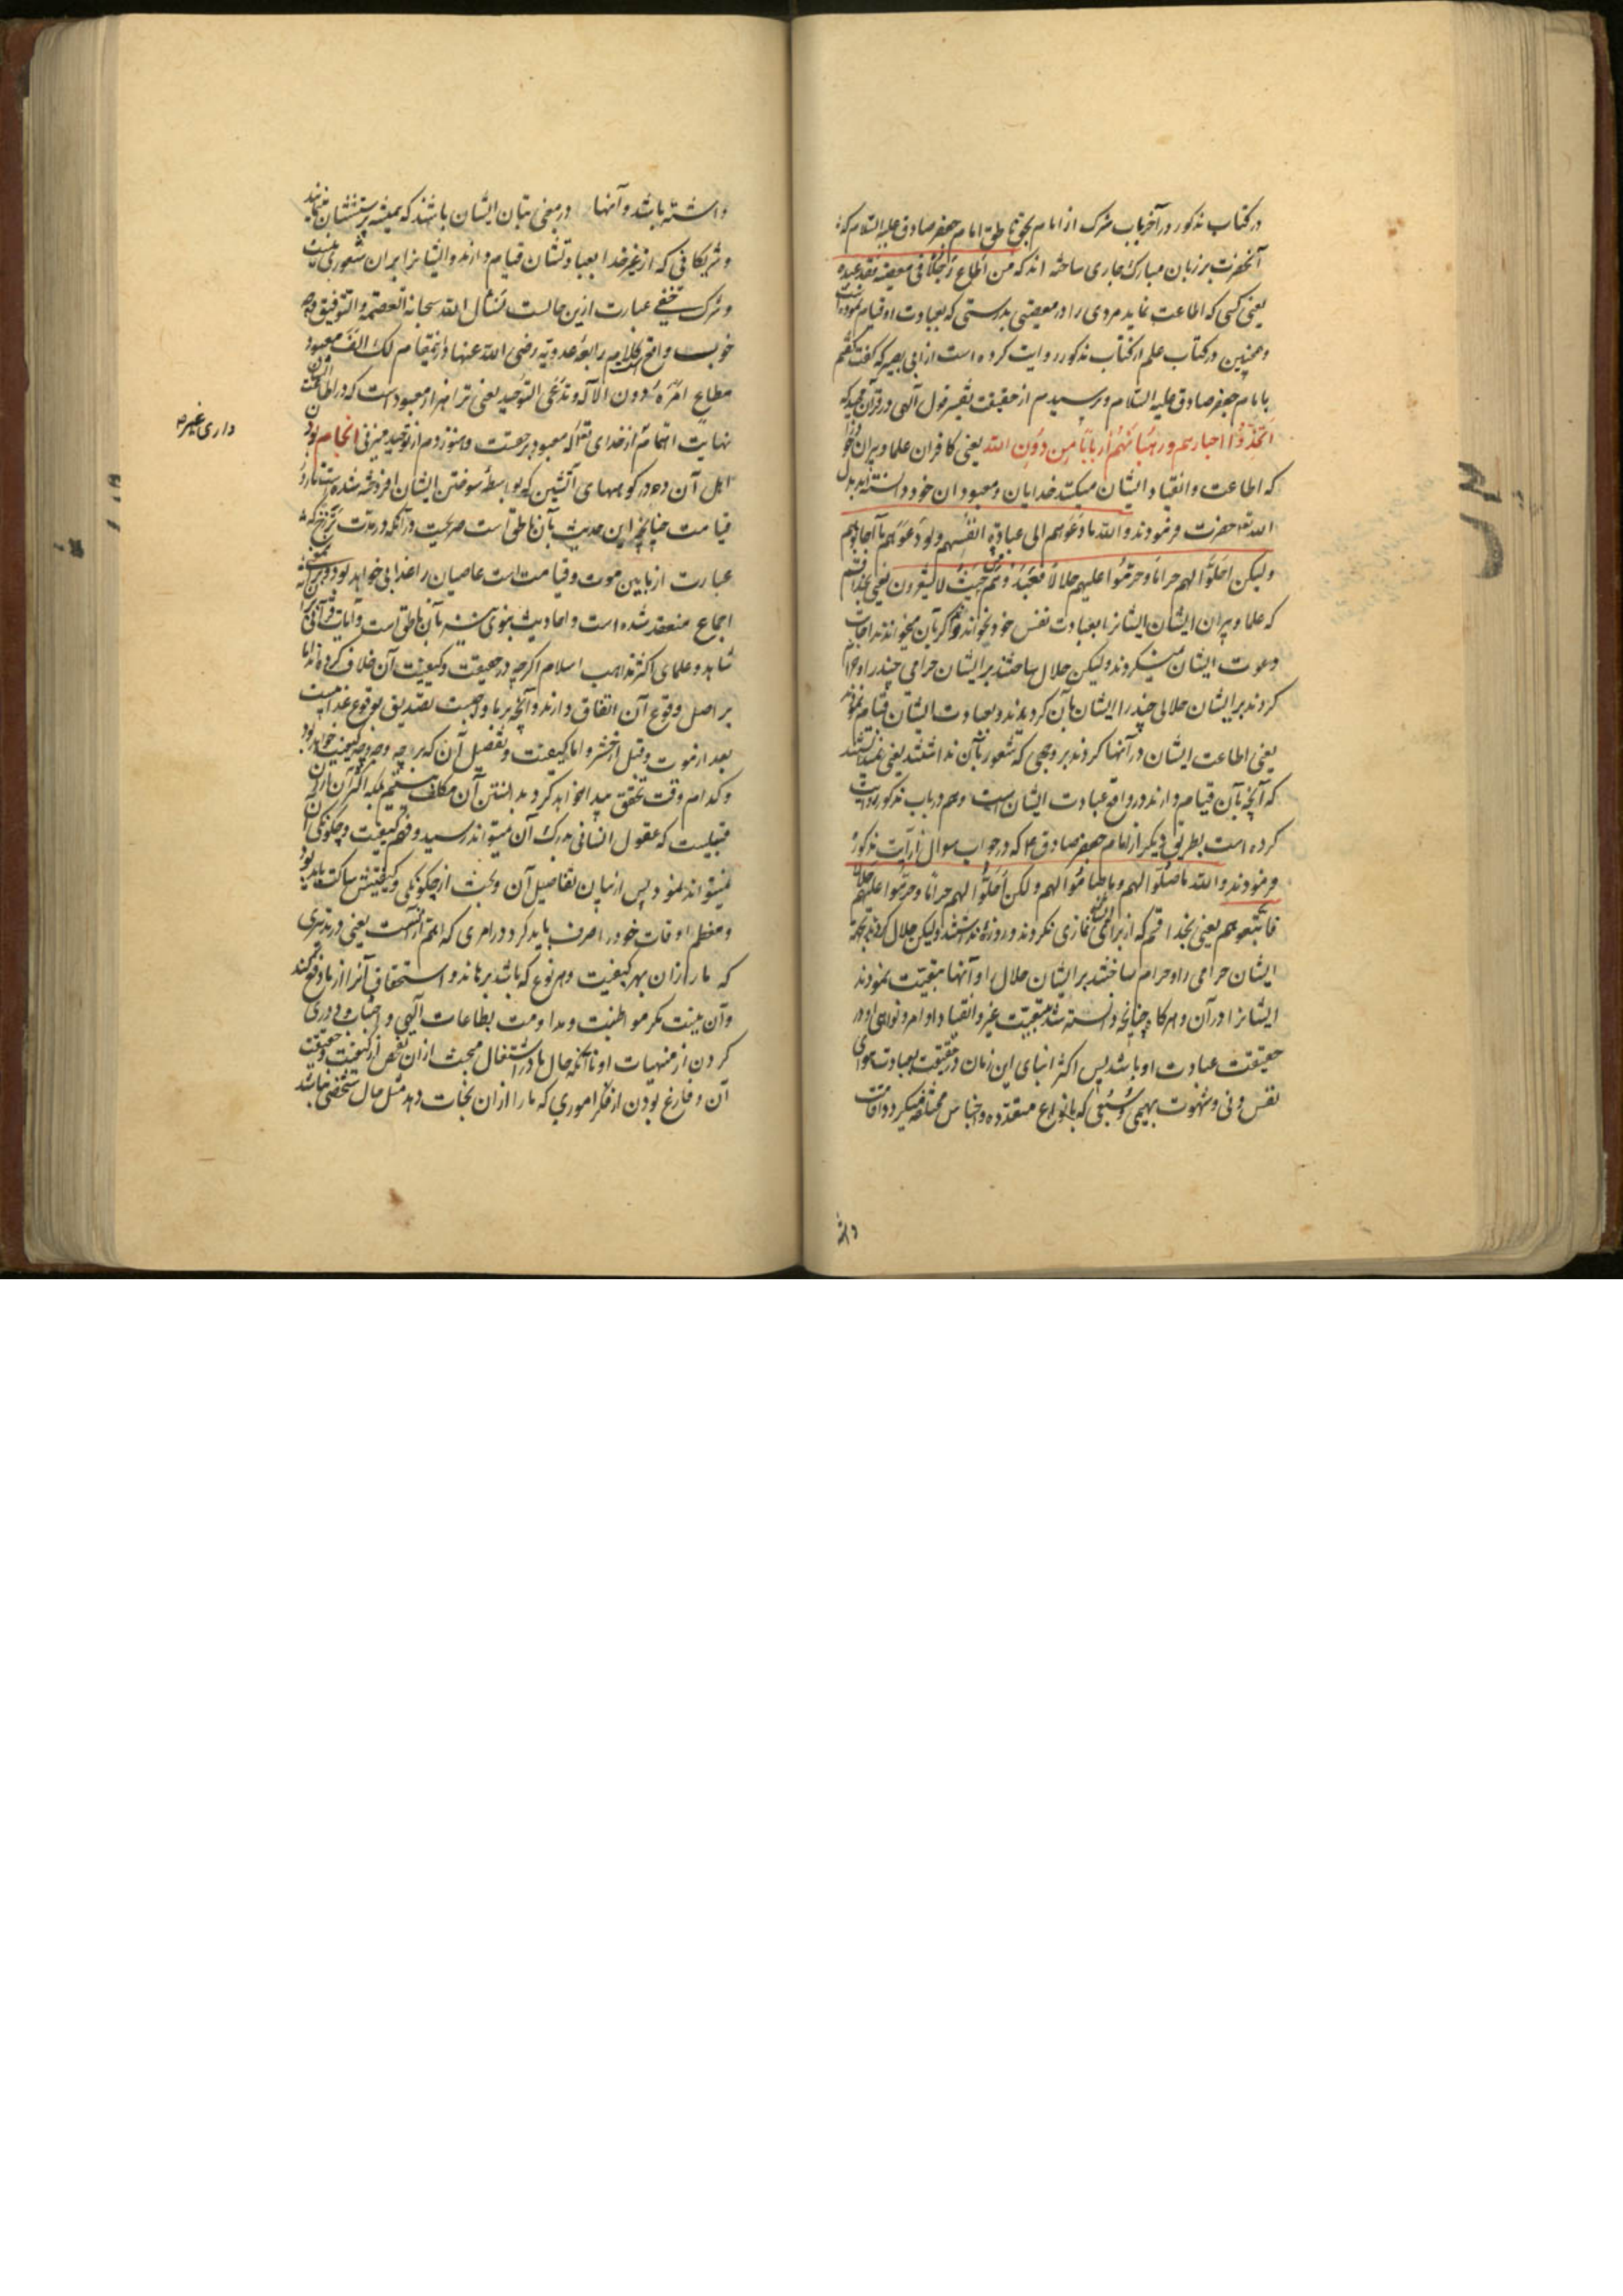 در کتاب مذکور در آخر باب شرک از امام بحق ناطق امام جعفر صادق علیه السلام که
آنحضرت بر زبان مبارک جاری ساخته اند که من اطاع رجلا فی معصیة فقد عبده
یعنی کسی که اطاعت نماید مردی را در معصیتی بدرستی که بعبادت او قیام نموده است
و همچنین در کتاب علم از کتاب مذکور روایت کرده است از ابی بصیر که گفت گفتم
بامام جعفر صادق علیه السلام و پرسیدم از حقیقت تفسیر قول آلهی در قرآن مجید که
اتخذوا احبارهم و رهبانهم اربابا من دون الله یعنی کافران علما و پیران خود را
که اطاعت و انقیاد ایشان میکنند خدایان و معبودان خود دانسته اند بدل
الله تع حضرت فرمودند والله ما دعوهم الی عبادة انفسهم ولو دعوهم ما اجابوهم
ولیکن احلوا لهم حراما و حرموا علیهم حلالا فعبدوهم من حیث لا یشعرون یعنی بخدا قسم
که علما و پیران ایشان ایشانرا بعبادت نفس خود نخواندند و اگر بآن میخواندند اجابت
دعوت ایشان نمیکردند ولیکن حلال ساختند بر ایشان حرامی چند را و حرام
کردند بر ایشان حلالی چند را ایشان بآن گرویدند و بعبادت ایشان قیام نمودند
یعنی اطاعت ایشان در آنها کردند بر وجهی که شعور بآن نداشتند یعنی نمیدانستند
که آنچه بآن قیام دارند در واقع عبادت ایشان است و هم در باب مذکور روایت
کرده است بطریق دیگر از امام جعفر صادق ع که در جواب سوال از آیت مذکور
فرمودند والله ما صلوا لهم و ما صاموا لهم و لکن احلوا لهم حراما و حرموا علیهم حلالا
فاتبعوهم یعنی بخدا قسم که از برای ایشان نمازی نکردند و روزه نداشتند ولیکن حلال کردند بجهة
ایشان حرامی را و حرام ساختند بر ایشان حلال را و آنها تبعیت نمودند
ایشانرا در آن و هرگاه چنانچه دانسته شد تبعیت غیر و انقیاد اوامر و نواهی او در
حقیقت عبادت او باشد پس اکثر ابنای این زمان در حقیقت بعبادت هوای
نفس دنی و شهوت بهیمی و سبعی که بانواع متعدده و اجناس مختلفه میگردد اقامت
داشته
داشته باشد و آنها در معنی بتان ایشان باشند که همیشه پرستششان مینمایند
و شریکانی که از غیر خدا بعبادتشان قیام دارند و ایشانرا بر آن شعوری نیست
و شرک خفی عبارت ازین حالست نسأل الله سبحانه العصمة و التوفیق و چه
خوبست واقع کلام رابعه عدویه رضی الله عنها در اینمقام لک الف معبود
مطاع امره دون الاله و تدعی التوحید یعنی ترا هزار معبود است که در اطاعتشان
نهایت اهتمام از خدای تع آله معبود برحقت و هنوز دم از توحید میزنی انجام بود
اهل آن ده در کوههای آتشین که بواسطه سوختن ایشان افروخته شده است تا روز
قیامت چنانچه این حدیث بآن ناطق است صریحست در آنکه در مدت برزخ که
عبارت از ما بین موت و قیامت است عاصیان را عذابی خواهد بود و برین معنی
اجماع منعقد شده است و احادیث نبوی بآن ناطق است و آیات قرآنی بر آن
شاهد و علمای اکثر مذاهب اسلام اگرچه در حقیقت و کیفیت آن خلاف کرده اند اما
بر اصل وقوع آن اتفاق دارند و آنچه بر ما واجبست تصدیق بوقوع عذابیست
بعد از موت و قبل از حشر و اما کیفیت و تفصیل آن که بر چه وجه و چه کیفیت خواهد بود
و کدام وقت تحقق پیدا خواهد کرد بدانستن آن مکلف نیستیم بلکه اکثر آن از آن
قبیلست که عقول انسانی بدرک آن نمیتواند رسید و فهم کیفیت و چگونگی آن
نمیتواند نمود پس از بیان تفاصیل آن و بحث از چگونگی و کیفیتش ساکت باید بود
و معظم اوقات خود را صرف باید کرد در امری که اهم از آنست یعنی در تدبیری
که ما را از آن بهر کیفیت و هر نوع که باشد برهاند و استحقاق آنرا از ما دفع کند
و آن نیست مگر مواظبت و مداومت بطاعات آلهی و اجتناب و دوری
کردن از منهیات او تا آنکه حال ما در اشتغال ببحث از آن و تفحص از کیفیت و حقیقت
آن و فارغ بودن از فکر اموری که ما را از آن نجات دهد مثل حال شخصی نباشد
داری غیره